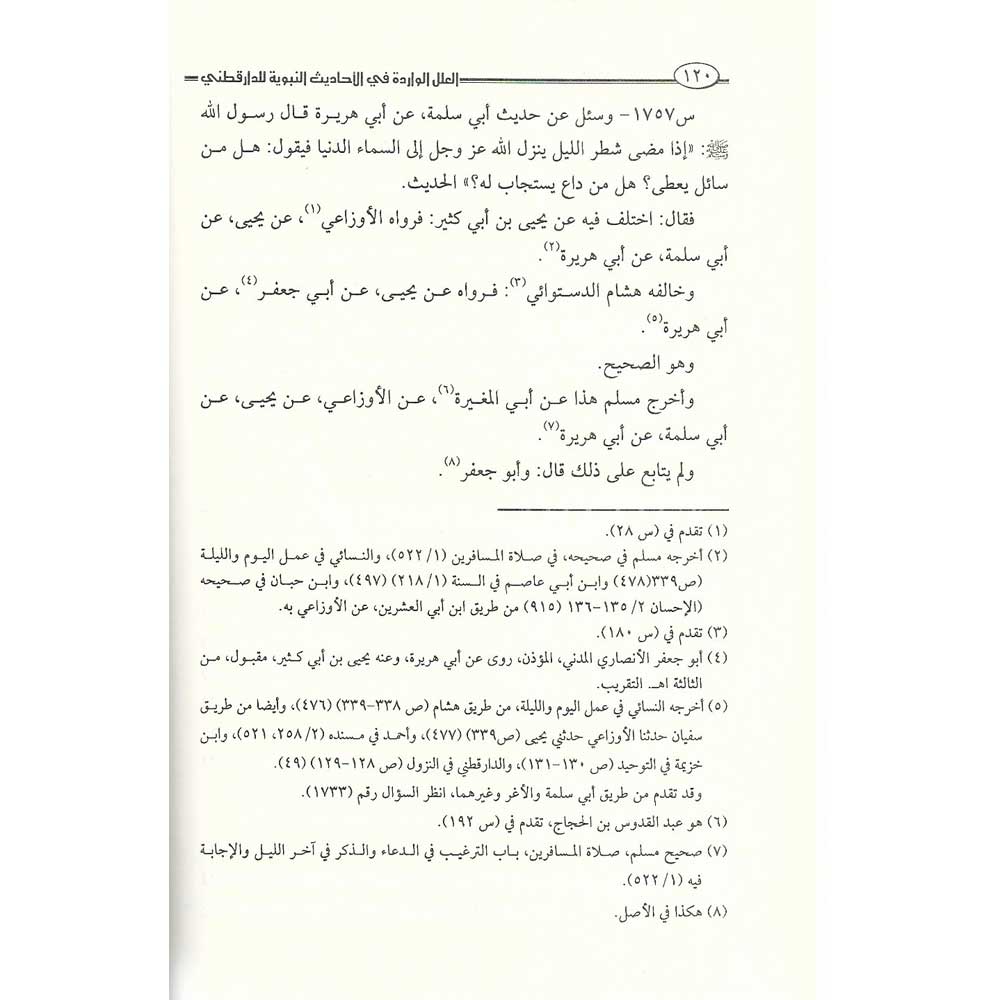 ١٢٠ العلل الواردة في الأحاديث النبوية للدارقطني
س١٧٥٧- وسئل عن حديث أبي سلمة، عن أبي هريرة قال رسول الله
ﷺ: «إذا مضى شطر الليل ينزل الله عز وجل إلى السماء الدنيا فيقول: هل من
سائل يعطى؟ هل من داع يستجاب له؟» الحديث.
فقال: اختلف فيه عن يحيى بن أبي كثير: فرواه الأوزاعي(١)، عن يحيى، عن
أبي سلمة، عن أبي هريرة(٢).
وخالفه هشام الدستوائي(٣): فرواه عن يحيى، عن أبي جعفر(٤)، عن
أبي هريرة(٥).
وهو الصحيح.
وأخرج مسلم هذا عن أبي المغيرة(٦)، عن الأوزاعي، عن يحيى، عن
أبي سلمة، عن أبي هريرة(٧).
ولم يتابع على ذلك قال: وأبو جعفر(٨).
(١) تقدم في (س ٢٨).
(٢) أخرجه مسلم في صحيحه، في صلاة المسافرين (١/ ٥٢٢)، والنسائي في عمل اليوم والليلة
(ص٣٣٩(٤٧٨) وابن أبي عاصم في السنة (١/ ٢١٨) (٤٩٧)، وابن حبان في صحيحه
(الإحسان ٢/ ١٣٥-١٣٦ (٩١٥) من طريق ابن أبي العشرين، عن الأوزاعي به.
(٣) تقدم في (س ١٨٠).
(٤) أبو جعفر الأنصاري المدني، المؤذن، روى عن أبي هريرة، وعنه يحيى بن أبي كثير، مقبول، من
الثالثة اهـ. التقريب.
(٥) أخرجه النسائي في عمل اليوم والليلة، من طريق هشام (ص ٣٣٨-٣٣٩) (٤٧٦)، وأيضا من طريق
سفيان حدثنا الأوزاعي حدثني يحيى (ص٣٣٩) (٤٧٧)، وأحمد في مسنده (٢/ ٢٥٨، ٥٢١)، وابن
خزيمة في التوحيد (ص ١٣٠-١٣١)، والدارقطني في النزول (ص ١٢٨-١٢٩) (٤٩).
وقد تقدم من طريق أبي سلمة والأغر وغيرهما، انظر السؤال رقم (١٧٣٣).
(٦) هو عبد القدوس بن الحجاج، تقدم في (س ١٩٢).
(٧) صحيح مسلم، صلاة المسافرين، باب الترغيب في الدعاء والذكر في آخر الليل والإجابة
فيه (١/ ٥٢٢).
(٨) هكذا في الأصل.